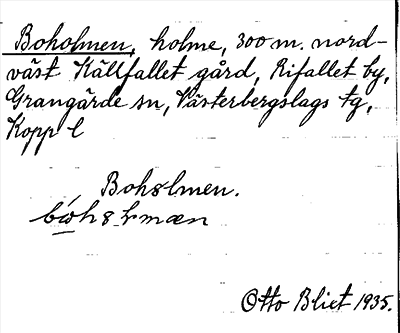 Boholmen, holme, 300 m. nord-
väst Källfallet gård, Rifallet by,
Grangärde sn, Västerbergslags tg,
Kopp l
Boholmen.
Otto Blixt 1935.